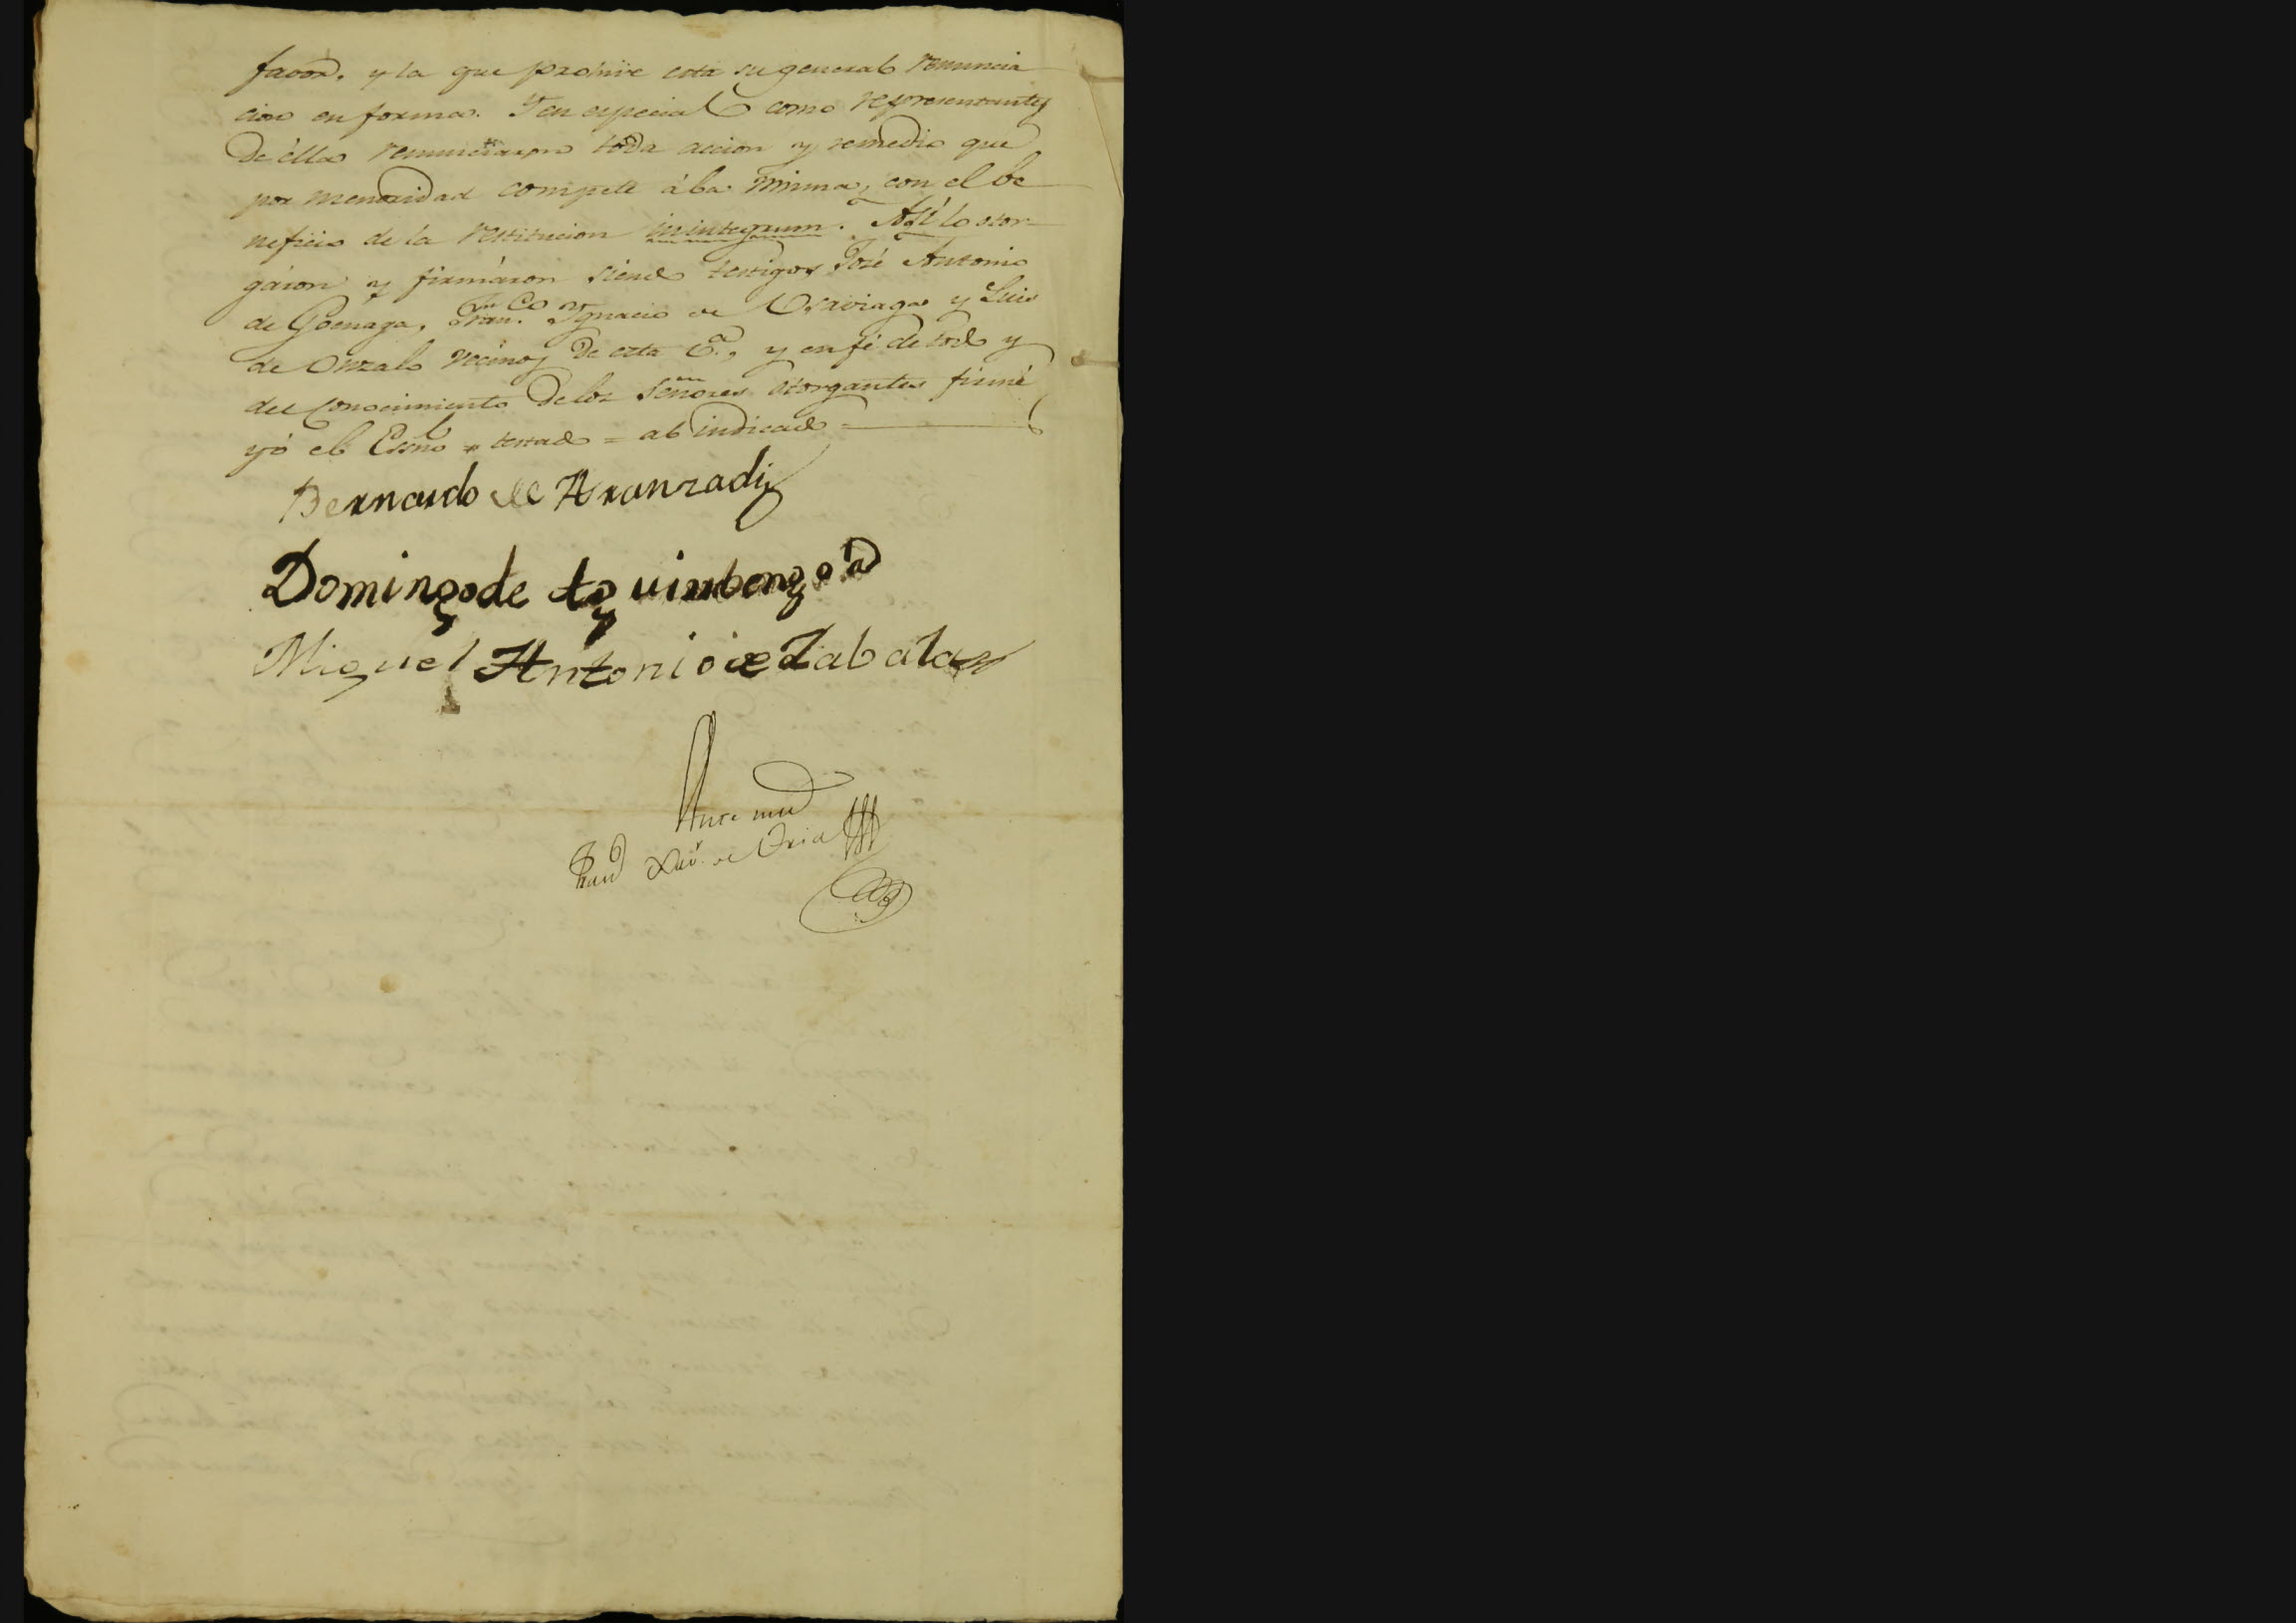 favor, y la que prohive esta su general renuncia
cion en forma. Y en especial como representantes
de élla renunciaron toda accion y remedio que
por menoridad compete á la misma, con el be
neficio de la restitucion in integrum. Asi lo otor-
gáron y firmáron siendo testigos José Antonio
de Goenaga, Fran.co Ygnacio de y Luis
de Onzalo vecinos de esta V.a, y en fé de todo y
del conocimiento de los señores otorgantes firmé
yó el Essno = testado = al indicado =
Bernardo de Aranzadi
Domingo de
Miguel Antonio de Zabala
Ante mi
Fran.co Xav.r de Oria